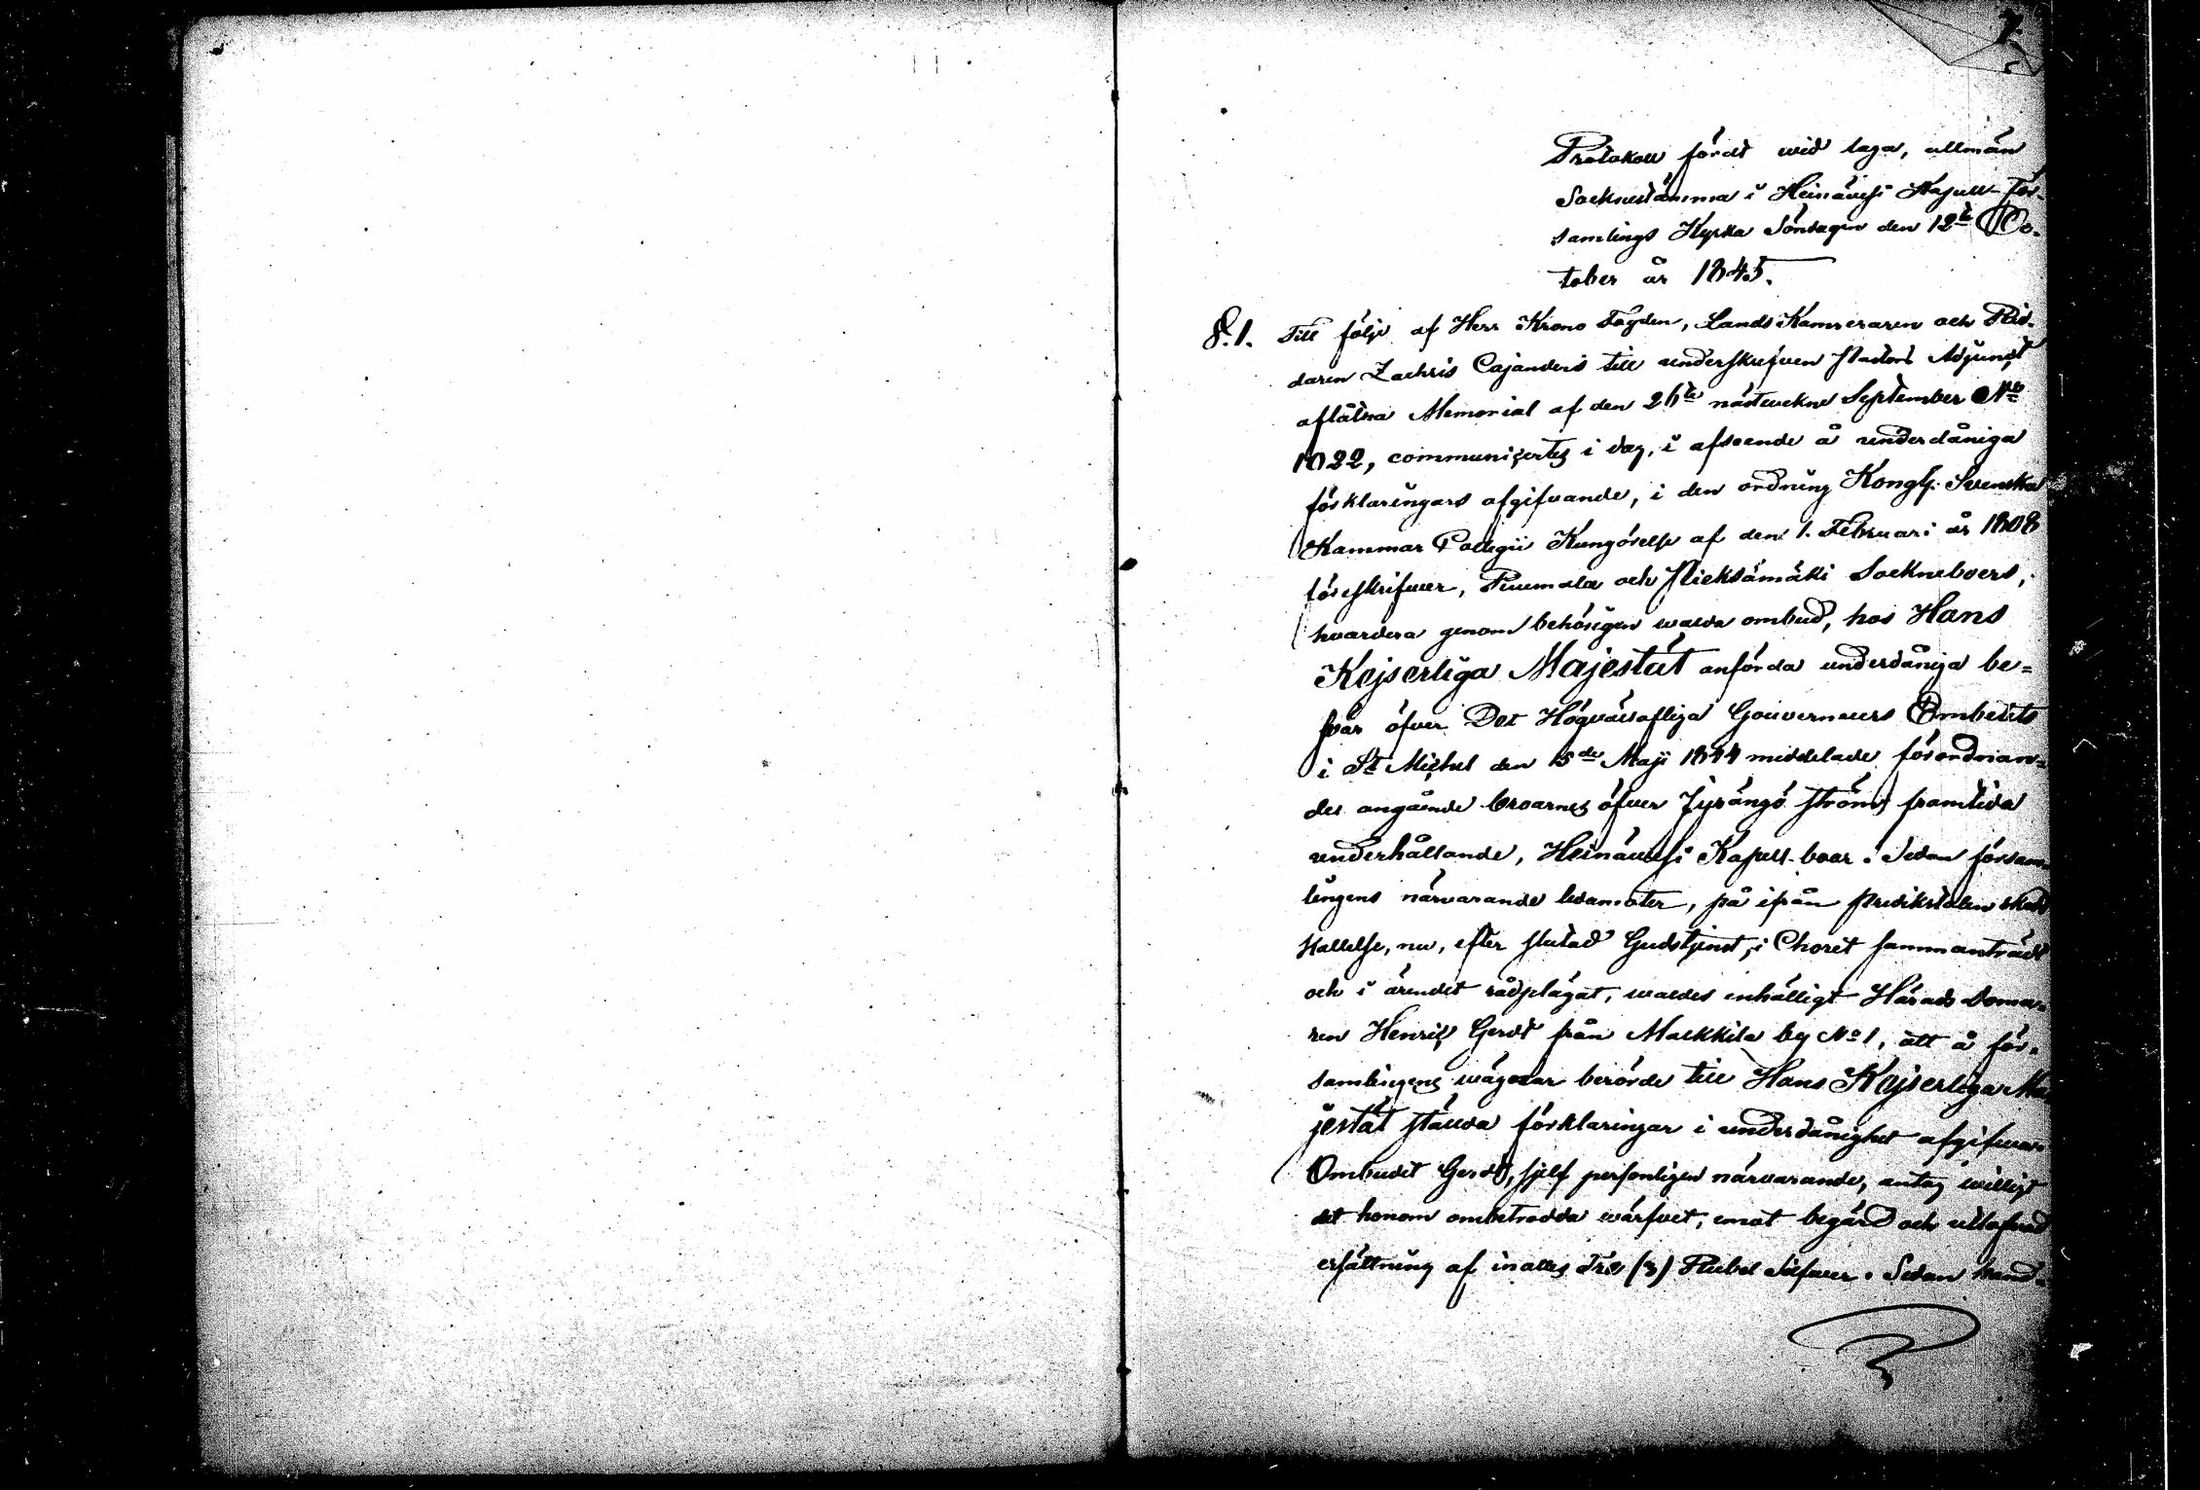 7.
Protokoll fördt wid laga, allmän
Socknestämma i Heinävesi Kapell-För-
samlings Kyrka Söndagen den 12te Oc-
tober år 1845.
§. 1. Till följe af Herr Krono Fogden, Lands Kamreraren och Rid-
daren Zachris Cajanders till underskrifven Pastors Adjunct
aflåtna Memorial af den 26te nästvekne September No
1022, communicertes i dag, i afseende å underdåniga
förklaringars afgifvande, i den ordning Kongl. Svenska
Kammar Collegii Kungörelse af den 1. Februari år 1808
föreskrifver, Puumala och Pieksämäki Sockneboers,
hvardera genom behörigen walda ombud, hos Hans
Kejserliga Majestät anförda underdåniga be-
svär öfver Det Högvälloflige Gouverneurs Embetets
i St Michel den 15de Maji 1844 meddelade förordnan-
de angående broarnes öfver Jyrängö ström framtida
underhållande, Heinävesi Kapell-boar. Sedan försam-
lingens närvarande ledamöter, på ifrån predikstolen skedd
Kallelse, nu, efter slutad Gudstjenst, i Choret sammanträdt
och i ärendet rådplägat, waldes enhälligt Härads Doma-
ren Henric Gerdt från Malkkila by No 1, att å för-
samlingens wägnar berörde till Hans Kejserliga Ma-
jestät stälda förklaringar i underdånighet afgifva.
Ombudet Gerdt, sjelf personligen närvarande, antog willigt
det honom ombetrodda wärfvet, emot begärd och utlofvad
ersättning af inalles Tre (3) Rubel Silfver. Sedan hand-